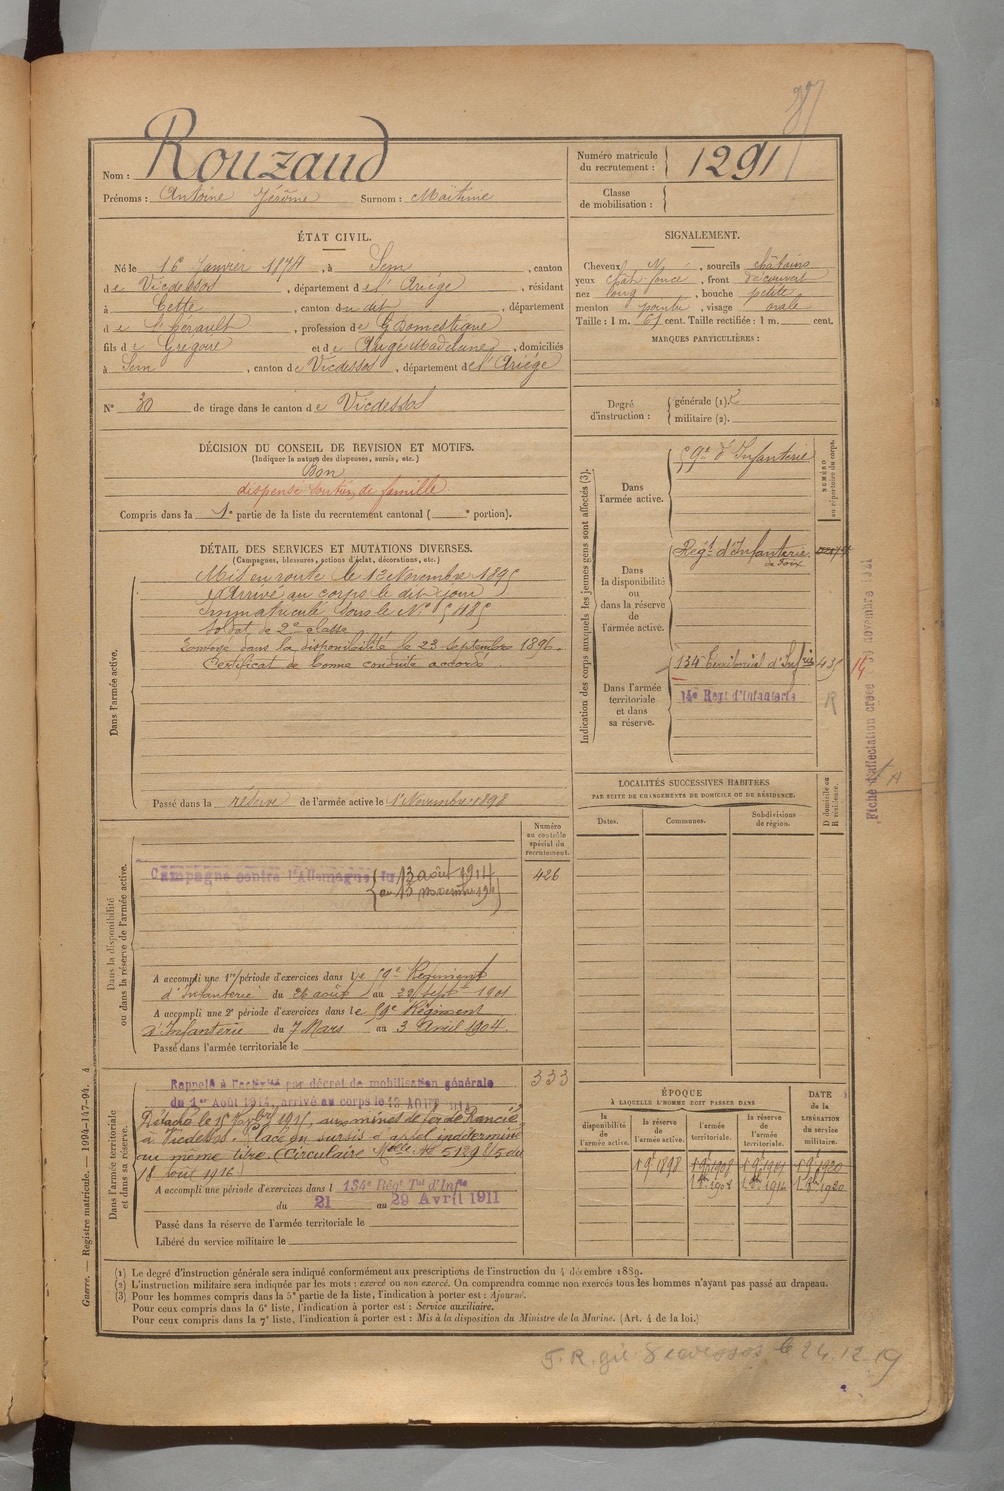 Rouzaud
Nom :
Prénoms : Antoine Jérôme Surnom :
Numéro matricule
du recrutement : 1291
Classe
de mobilisation :
ÉTAT CIVIL.
Né le 16 Janvier 1874, à Sem, canton
de Vicdessos, département de l'Ariège, résidant
à Cette, canton du dit, département
de l'hérault, profession de Domestique
fils de Grégoire et de Augé Madelaine, domiciliés
à Sem, canton de Vicdessos, département de l'Ariège
N° 30 de tirage dans le canton de Vicdessos
DÉCISION DU CONSEIL DE REVISION ET MOTIFS.
(Indiquer la nature des dispenses, sursis, etc.)
Bon
dispensé soutien de famille
Compris dans la 1e partie de la liste du recrutement cantonal ( e portion).
DÉTAIL DES SERVICES ET MUTATIONS DIVERSES.
(Campagnes, blessures, actions d'éclat, décorations, etc.)
Dans l'armée active.
Mis en route le 13 Novembre 1895
Arrivé au corps le dit jour
Immatriculé sous le N°
Soldat de 2e classe
Envoyé dans la disponibilité le 23 Septembre 1896.
Certificat de bonne conduite accordé.
Passé dans la réserve de l'armée active le 1er Novembre 1898
Dans la disponibilité
ou dans la réserve de l'armée active.
Numéro
au contrôle
spécial du
recrutement.
Campagne contre l'Allemagne du 13 août 1914
au 15 novembre 191
426
A accompli une 1re période d'exercices dans le 59e Régiment
d'Infanterie du 26 août au 22 Sept 1901
A accompli une 2e période d'exercices dans le 59e Régiment
d'Infanterie du 7 Mars au 3 Avril 1904.
Passé dans l'armée territoriale le
Dans l'armée territoriale
et dans sa réserve.
Rappelé à l'activité par décret de mobilisation générale
du 1er Août 1914, arrivé au corps le 13 AOUT 1914
333
Détaché le 15 aux mines de fer de Rancié
à Vicdessos. Placé en sursis d'appel indéterminé
au même titre. (Circulaire Melle N° 5129 du
18 août 1916)
A accompli une période d'exercices dans l 134e Régt Tal d'Infie
du 21 au 29 Avril 1911
Passé dans la réserve de l'armée territoriale le
Libéré du service militaire le
SIGNALEMENT.
Cheveux N, sourcils châtains
yeux chât foncé, front découvert
nez long, bouche petite
menton pointu, visage ovale
Taille : 1 m. 61 cent. Taille rectifiée : 1 m. cent.
MARQUES PARTICULIÈRES :
Degré
d'instruction :
générale (1).
militaire (2).
Indication des corps auxquels les jeunes gens sont affectés (3).
NUMÉRO
au répertoire du corps.
Dans
l'armée active.
59e d'Infanterie
Dans
la disponibilité
ou dans la réserve
de
l'armée active.
Régt d'Infanterie
de Foix
Dans l'armée
territoriale
et dans
sa réserve.
134 Territorial d'Infie
14
14e Regt d'Infanterie
R
Fiche d'affectation créée
LOCALITÉS SUCCESSIVES HABITÉES
PAR SUITE DE CHANGEMENTS DE DOMICILE OU DE RÉSIDENCE.
Dates.
Communes.
Subdivisions
de région.
D domicile ou
R résidence.
ÉPOQUE
À LAQUELLE L'HOMME DOIT PASSER DANS
DATE
de la
LIBÉRATION
du service
militaire.
la
disponibilité
de
l'armée active.
la réserve
de
l'armée active.
l'armée
territoriale.
la réserve
de
l'armée
territoriale.
(1) Le degré d'instruction générale sera indiqué conformément aux prescriptions de l'instruction du 4 décembre 1889.
(2) L'instruction militaire sera indiquée par les mots : exercé ou non exercé. On comprendra comme non exercés tous les hommes n'ayant pas passé au drapeau.
(3) Pour les hommes compris dans la 5e partie de la liste, l'indication à porter est : Ajourné.
Pour ceux compris dans la 6e liste, l'indication à porter est : Service auxiliaire.
Pour ceux compris dans la 7e liste, l'indication à porter est : Mis à la disposition du Ministre de la Marine. (Art. 4 de la loi.)
Guerre. — Registre matricule. — 1994-147-94. 4
le 24.12.19